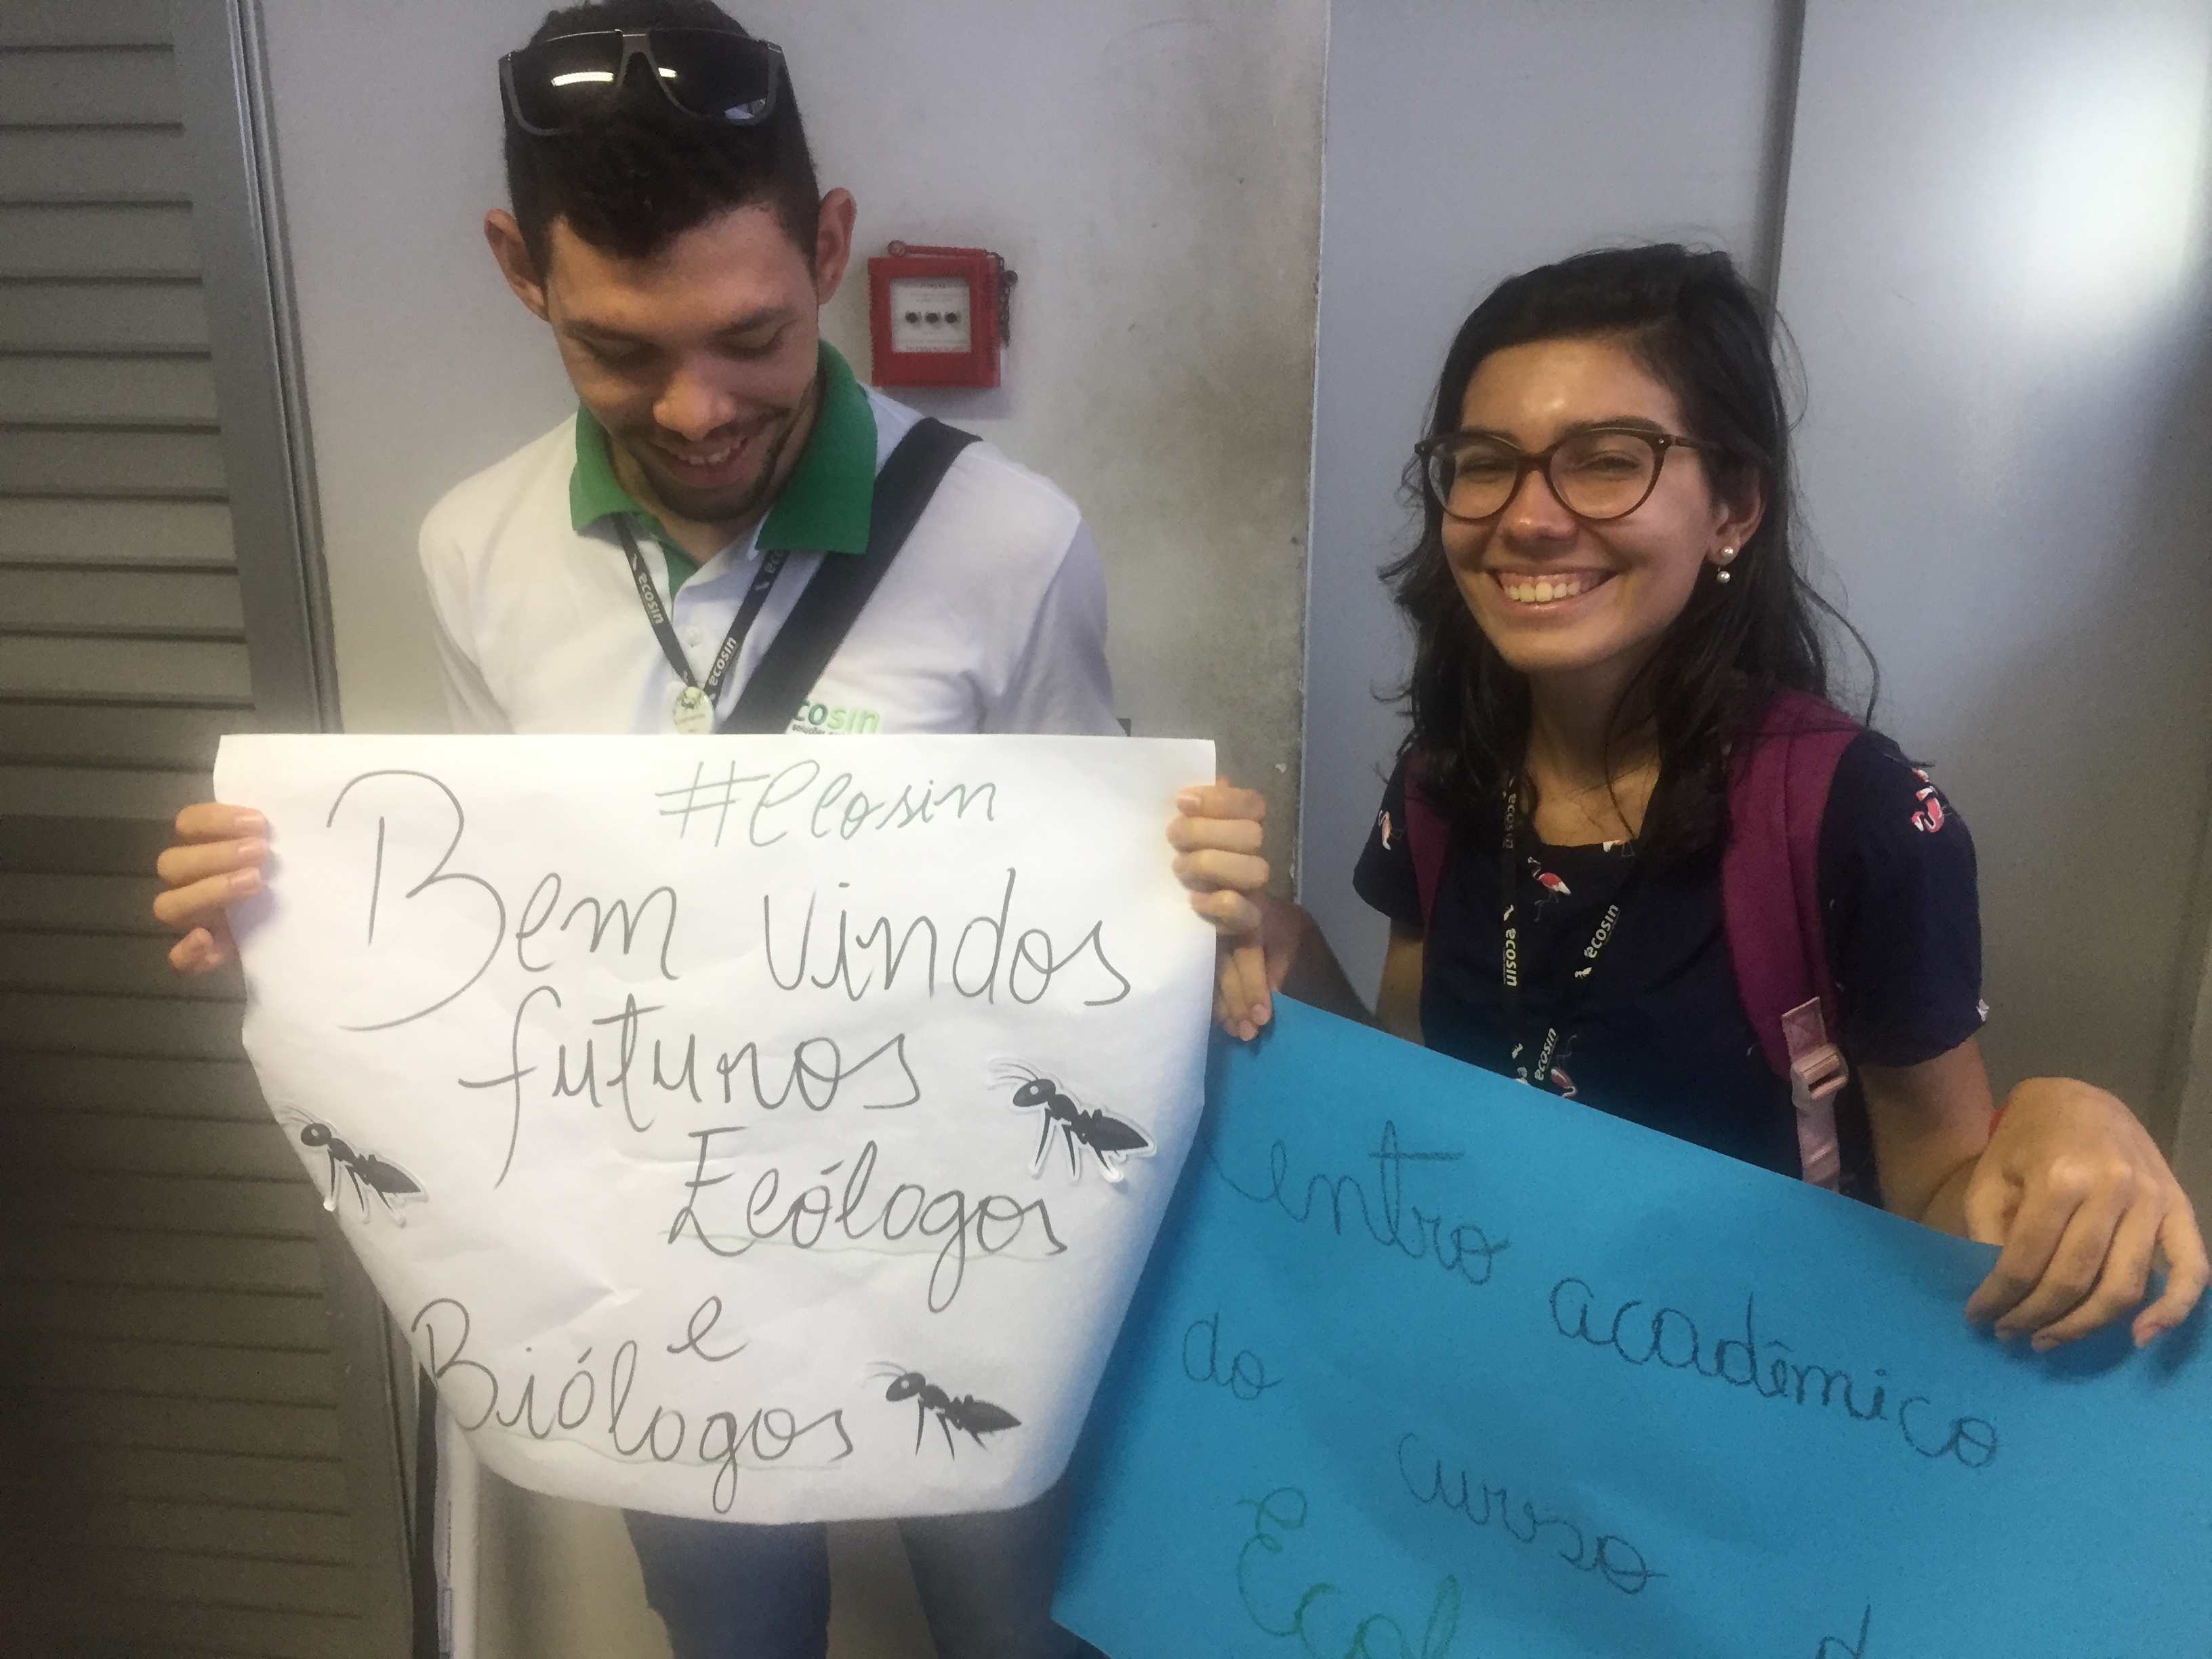 ecosin
ecosin
cosin
#Ecosin
Bem vindos
futuros
Ecólogos
e
Biólogos
ecosin
ecosin
ecosin
ecosin
Centro acadêmico
do
curso d
Ecol